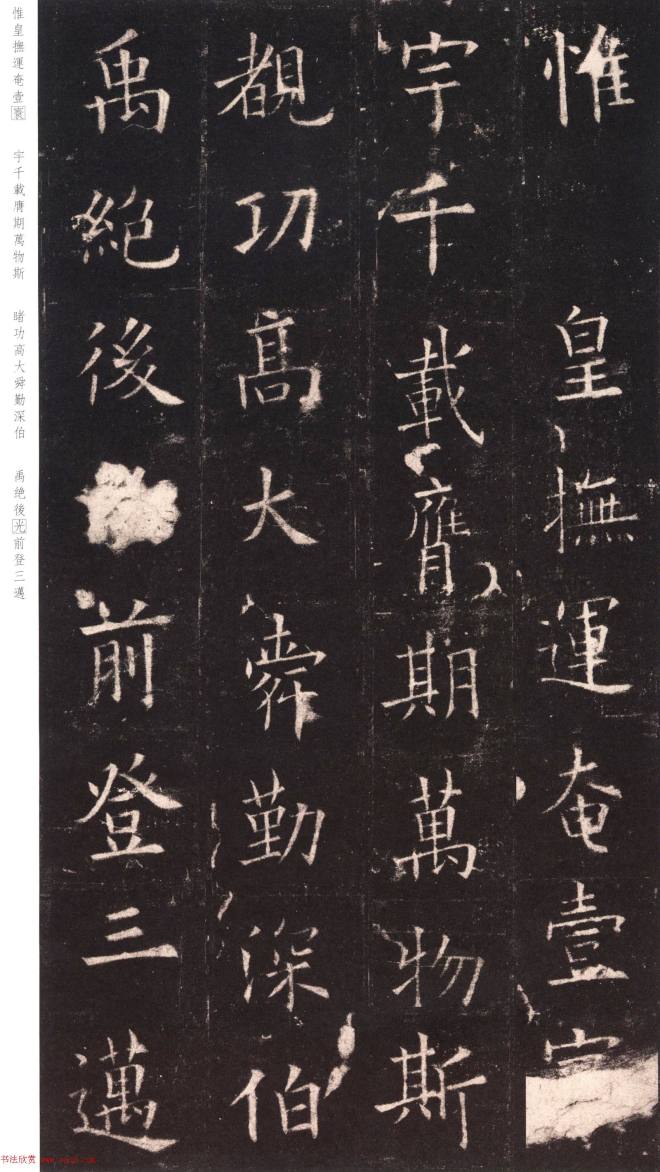 惟皇撫運奄壹
宇千載膺期萬物斯
覩功高大舜勤深伯
禹絕後前登三邁
惟皇撫運奄壹寰 宇千載膺期萬物斯 睹功高大舜勤深伯 禹绝後光前登三邁
书法欣赏